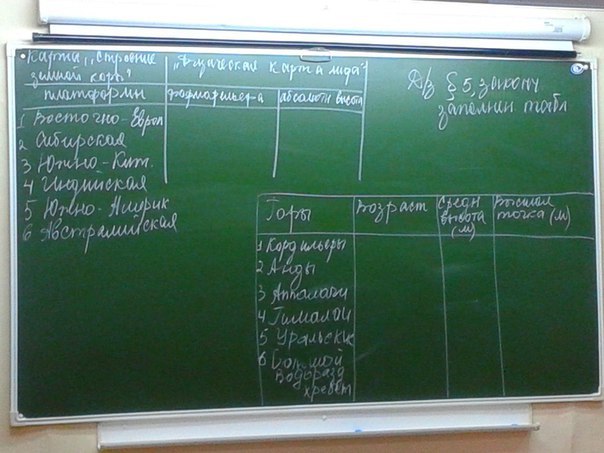 Карта „Строение
земной коры"
„Физическая карта мира"
платформы
форма рельефа
абсолютн высота
1 Восточно-Европ
2 Сибирская
3 Южно-Кит.
4 Индийская
5 Южно-Америк
6 Австралийская
Д/з § 5, законч.
заполнить табл
Горы
Возраст
Средн
высота
(м)
Высшая
точка (м)
1 Кордильеры
2 Анды
3 Аппалачи
4 Гималаи
5 Уральские
6 Большой
Водоразд
хребет